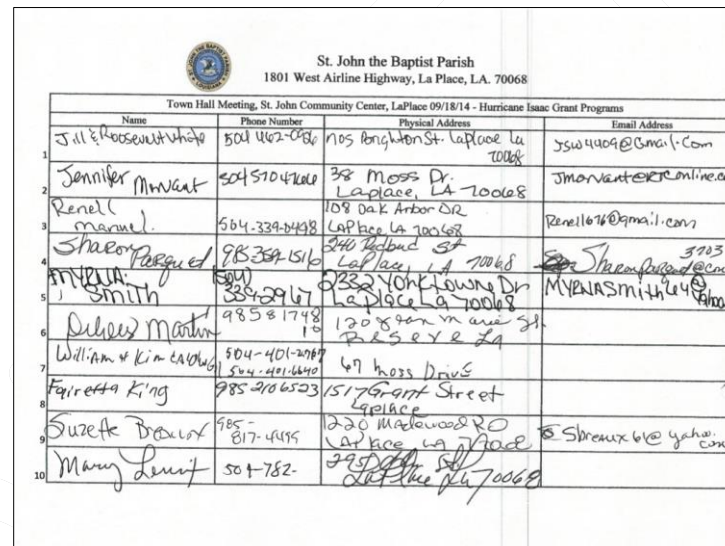 St. John the Baptist Parish
1801 West Airline Highway, La Place, LA. 70068
Town Hall Meeting, St. John Community Center, LaPlace 09/18/14 - Hurricane Isaac Grant Programs
Name Phone Number Physical Address Email Address
1 Jill & Roosevelt White 504 462- St. Laplace La 70068 JSW4409@Gmail.Com
2 Jennifer Morvant 38 Moss Dr. Laplace, LA 70068
3 Renell Manuel 504-339-0498 108 Oak Arbor DR LAPlace LA 70068 Renell676@gmail.com
4 Sharon 985 359-1516 240 Redbud St LaPlace, LA 70068
5 MYRNA Smith (504) 339-2967 2332 Yorktowne Dr Laplace La 70068
6 Martin 985 81748 10 120 St. Reserve La
7 William & Kim 504-401-2767 504-401-6640 67 Moss Drive
8 Fairetta King 985 2106523 1517 Grant Street Laplace
9 Suzette Breaux 985-817-4495 1220 RD LAPlace LA Sbreaux61@yahoo.com
10 Mary 504-782- St LaPlace La 70068